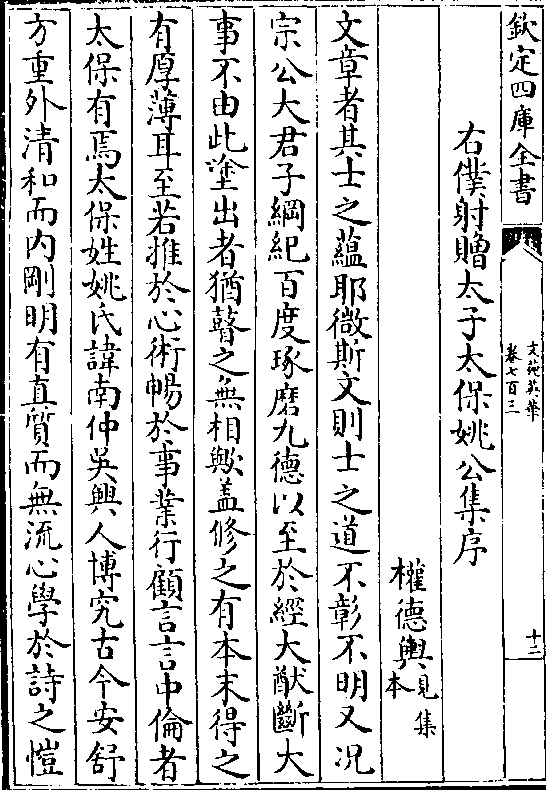 欽定四庫全書
文苑英華
卷七百三
十二
右僕射贈太子太保姚公集序
權德輿見集本
文章者其士之蘊耶微斯文則士之道不彰不明又況
宗公大君子綱紀百度琢磨九德以至於經大猷斷大
事不由此塗出者猶瞽之無相歟盖修之有本末得之
有厚薄耳至若推於心術暢於事業行顧言言中倫者
太保有焉太保姓姚氏諱南仲吳興人博究古今安舒
方重外清和而内剛明有直質而無流心學於詩之愷